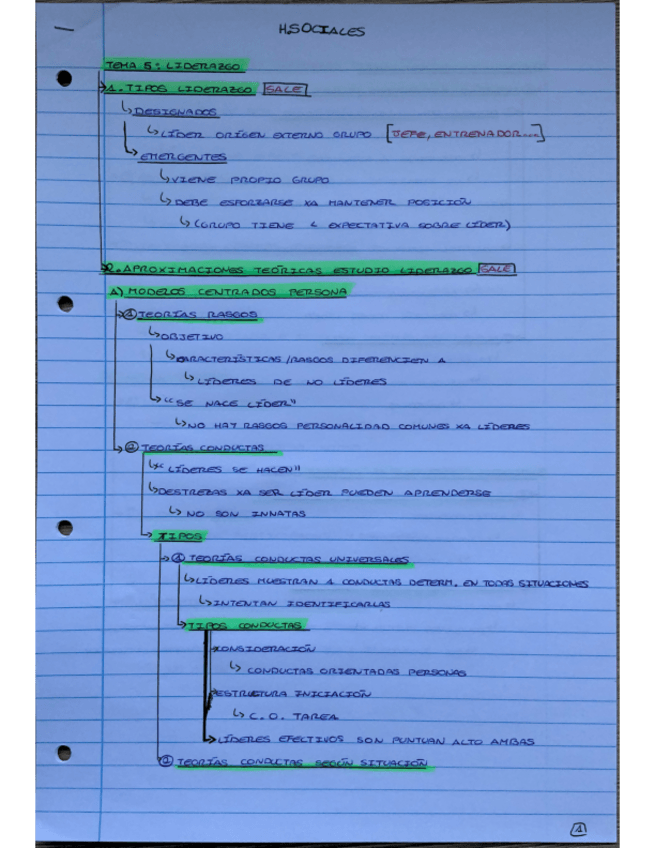 H.SOCIALES
TEMA 5: LIDERAZGO
1.-TIPOS LIDERAZGO [SALE]
DESIGNADOS
LÍDER ORÍGEN EXTERNO GRUPO [JEFE, ENTRENADOR...]
EMERGENTES
VIENE PROPIO GRUPO
DEBE ESFORZARSE XA MANTENER POSICIÓN
(GRUPO TIENE 1 EXPECTATIVA SOBRE LÍDER)
2.-APROXIMACIONES TEÓRICAS ESTUDIO LIDERAZGO [SALE]
A) MODELOS CENTRADOS PERSONA
① TEORÍAS RASGOS
OBJETIVO
CARACTERÍSTICAS/RASGOS DIFERENCIEN A
LÍDERES DE NO LÍDERES
"SE NACE LÍDER"
NO HAY RASGOS PERSONALIDAD COMUNES XA LÍDERES
② TEORÍAS CONDUCTAS
"LÍDERES SE HACEN"
DESTREZAS XA SER LÍDER PUEDEN APRENDERSE
NO SON INNATAS
TIPOS
① TEORÍAS CONDUCTAS UNIVERSALES
LÍDERES MUESTRAN 1 CONDUCTAS DETERM. EN TODAS SITUACIONES
INTENTAN IDENTIFICARLAS
TIPOS CONDUCTAS
CONSIDERACIÓN
CONDUCTAS ORIENTADAS PERSONAS
ESTRUCTURA INICIACIÓN
C.O. TAREA
LÍDERES EFECTIVOS SON PUNTUAN ALTO AMBAS
② TEORÍAS CONDUCTAS SEGÚN SITUACIÓN
1